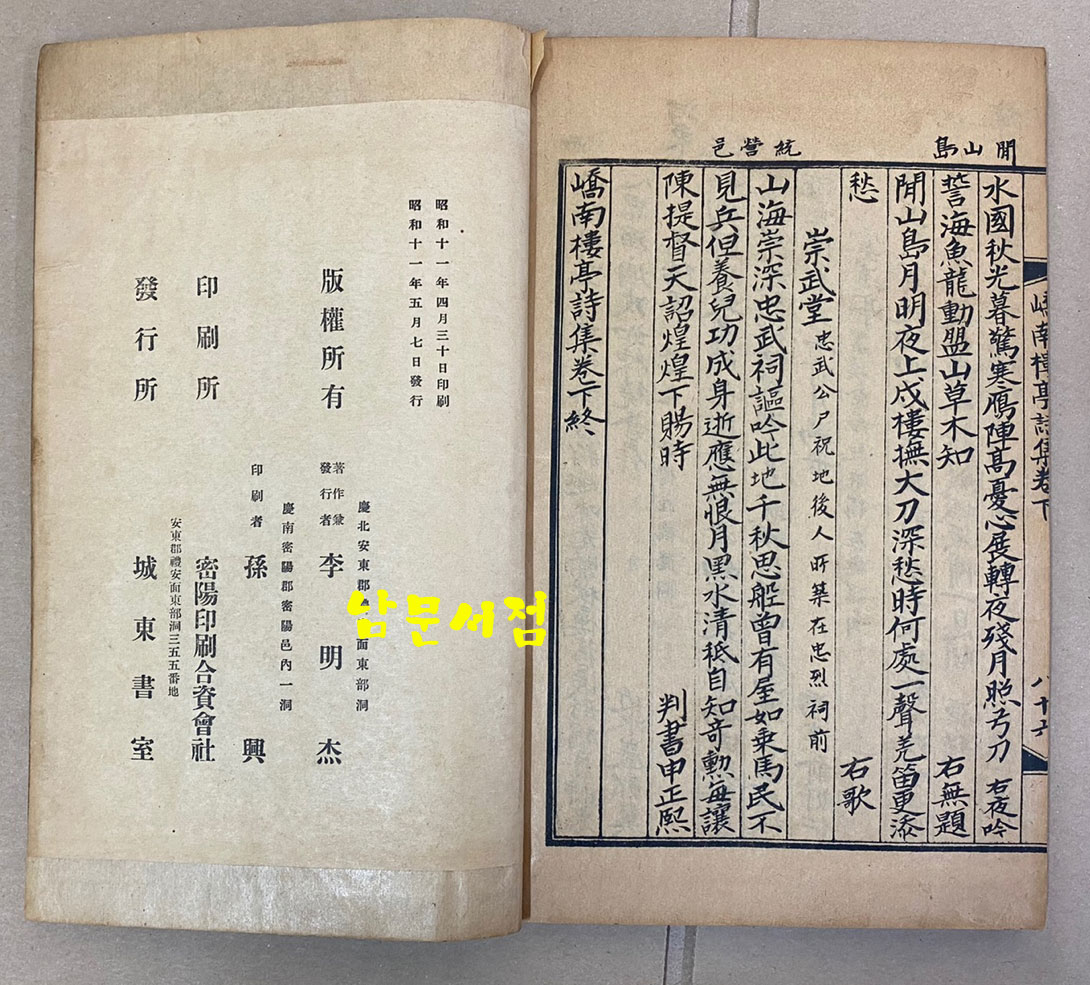 閒山島
統營邑
水國秋光暮驚寒鴈陣高憂心展轉夜殘月照弓刀 右夜吟
誓海魚龍動盟山草木知 右無題
閒山島月明夜上戍樓撫大刀深愁時何處一聲羌笛更添
愁 右歌
崇武堂 忠武公尸祝地後人所築在忠烈祠前
山海崇深忠武祠謳吟此地千秋思船曾有屋如乘馬民不
見兵但養兒功成身逝應無恨月黑水清秪自知奇勳每讓
陳提督天詔煌煌下賜時 判書申正熙
嶠南樓亭詩集卷下終
嶠南樓亭詩集卷下 八十六
昭和十一年四月三十日印刷
昭和十一年五月七日發行
版權所有
慶北安東郡 面東部洞
著作兼
發行者 李明杰
慶南密陽郡密陽邑內一洞
印刷者 孫興
印刷所 密陽印刷合資會社
安東郡禮安面東部洞三五五番地
發行所 城東書室
남문서점